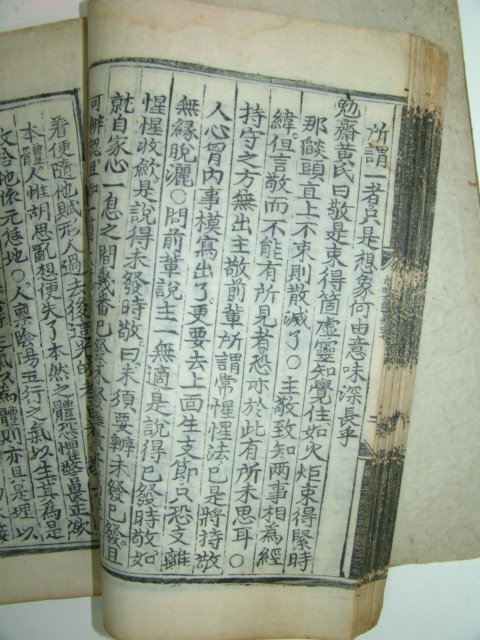 所謂一者只是想象何由意味深長乎
勉齋黃氏曰敬是束得箇虛靈知覺住如火炬束得緊時
那燄頭直上不束則散滅了○主敬致知兩事相為經
緯但言敬而不能有所見者恐亦於此有所未思耳○
持守之方無出主敬前輩所謂常惺惺法已是將持敬
人心胷內事模寫出了更要去上面生支節只恐支離
無緣脫灑○問前輩說主一無適是說得已發時敬如
惺惺收斂是說得未發時敬曰未須要辨未發已發且
就自家心一息之間幾番已發未發
可辨
看便隨他賦形人過去後
本體人惟胡思亂想便失了本然之體恐懼
地○人稟陰陽五行之氣以生其為是
為體則亦具是理以